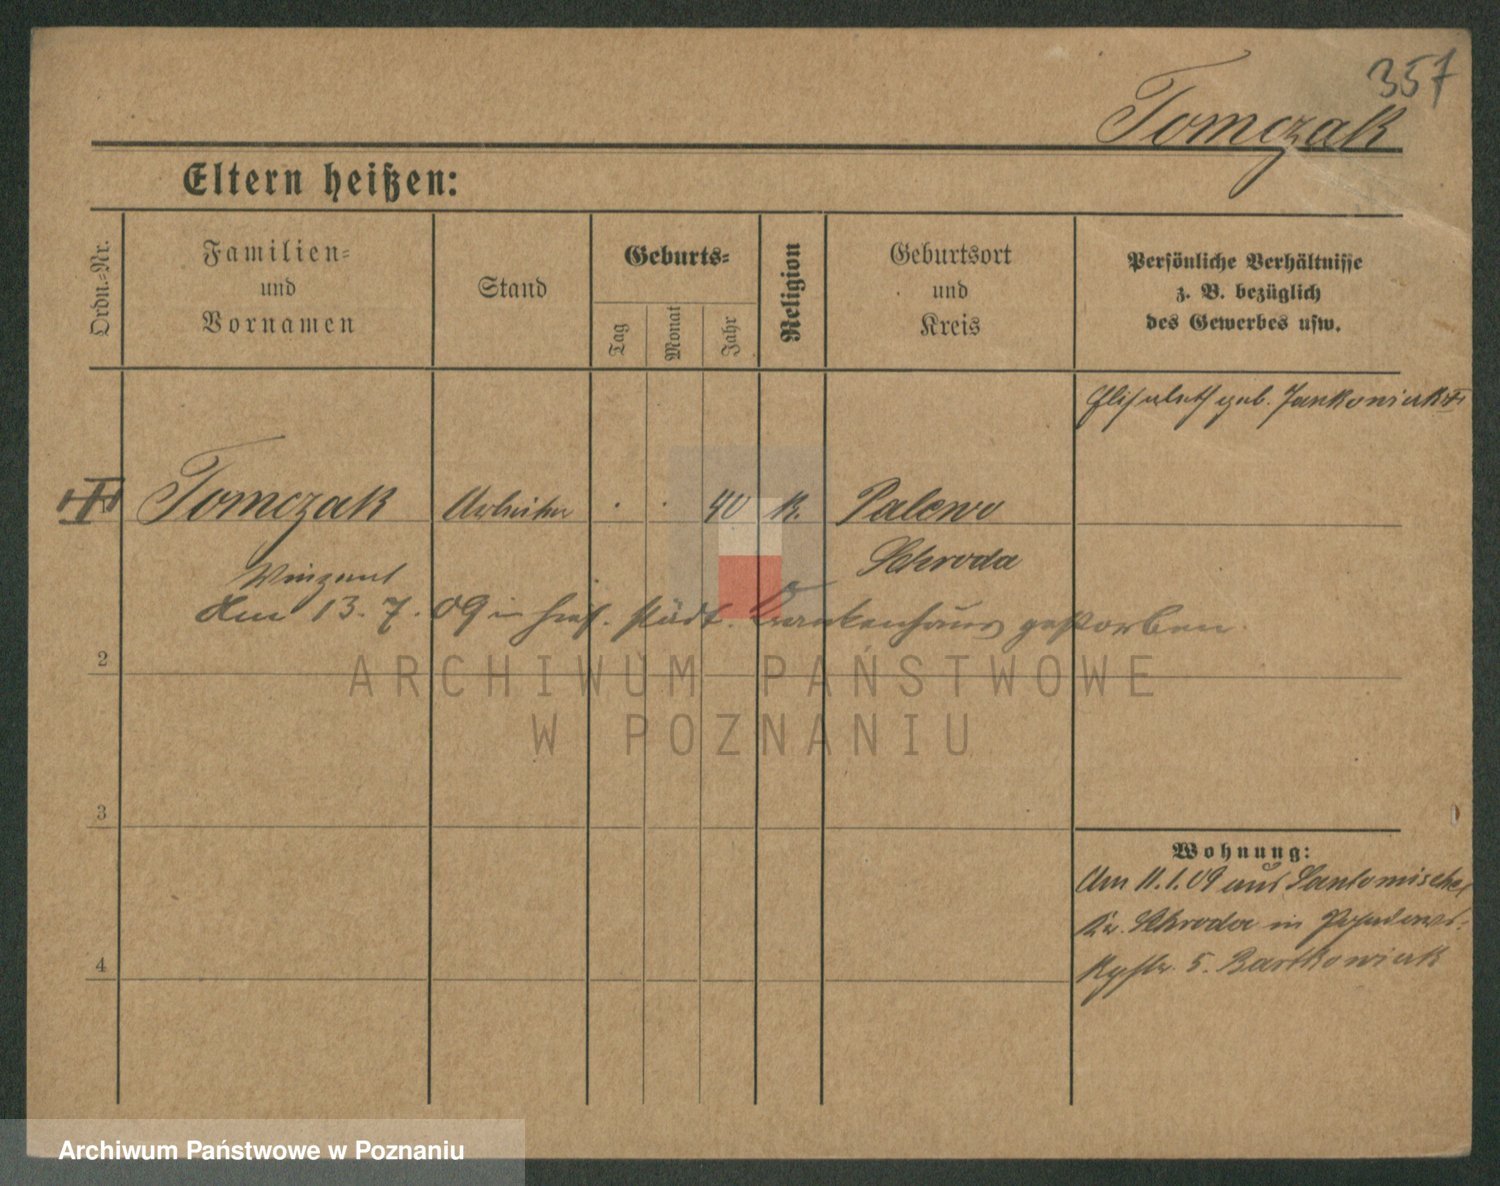 357
Tomczak
Eltern heißen:
Ordn.-Nr.
Familien-
und
Vornamen
Stand
Geburts-
Tag
Monat
Jahr
Religion
Geburtsort
und
Kreis
Persönliche Verhältnisse
z. B. bezüglich
des Gewerbes usw.
geb. Jankowiak
Tomczak Arbeiter . . 40 K. Palewo
Schroda
Winzent
Am 13. 7. 09 in hies. städt. Krankenhaus gestorben
2
ARCHIWUM PAŃSTWOWE
W POZNANIU
3
Wohnung:
Am 11.1.09 aus Santomischel
Kr. Schroda in
4
5. Bartkowiak
Archiwum Państwowe w Poznaniu